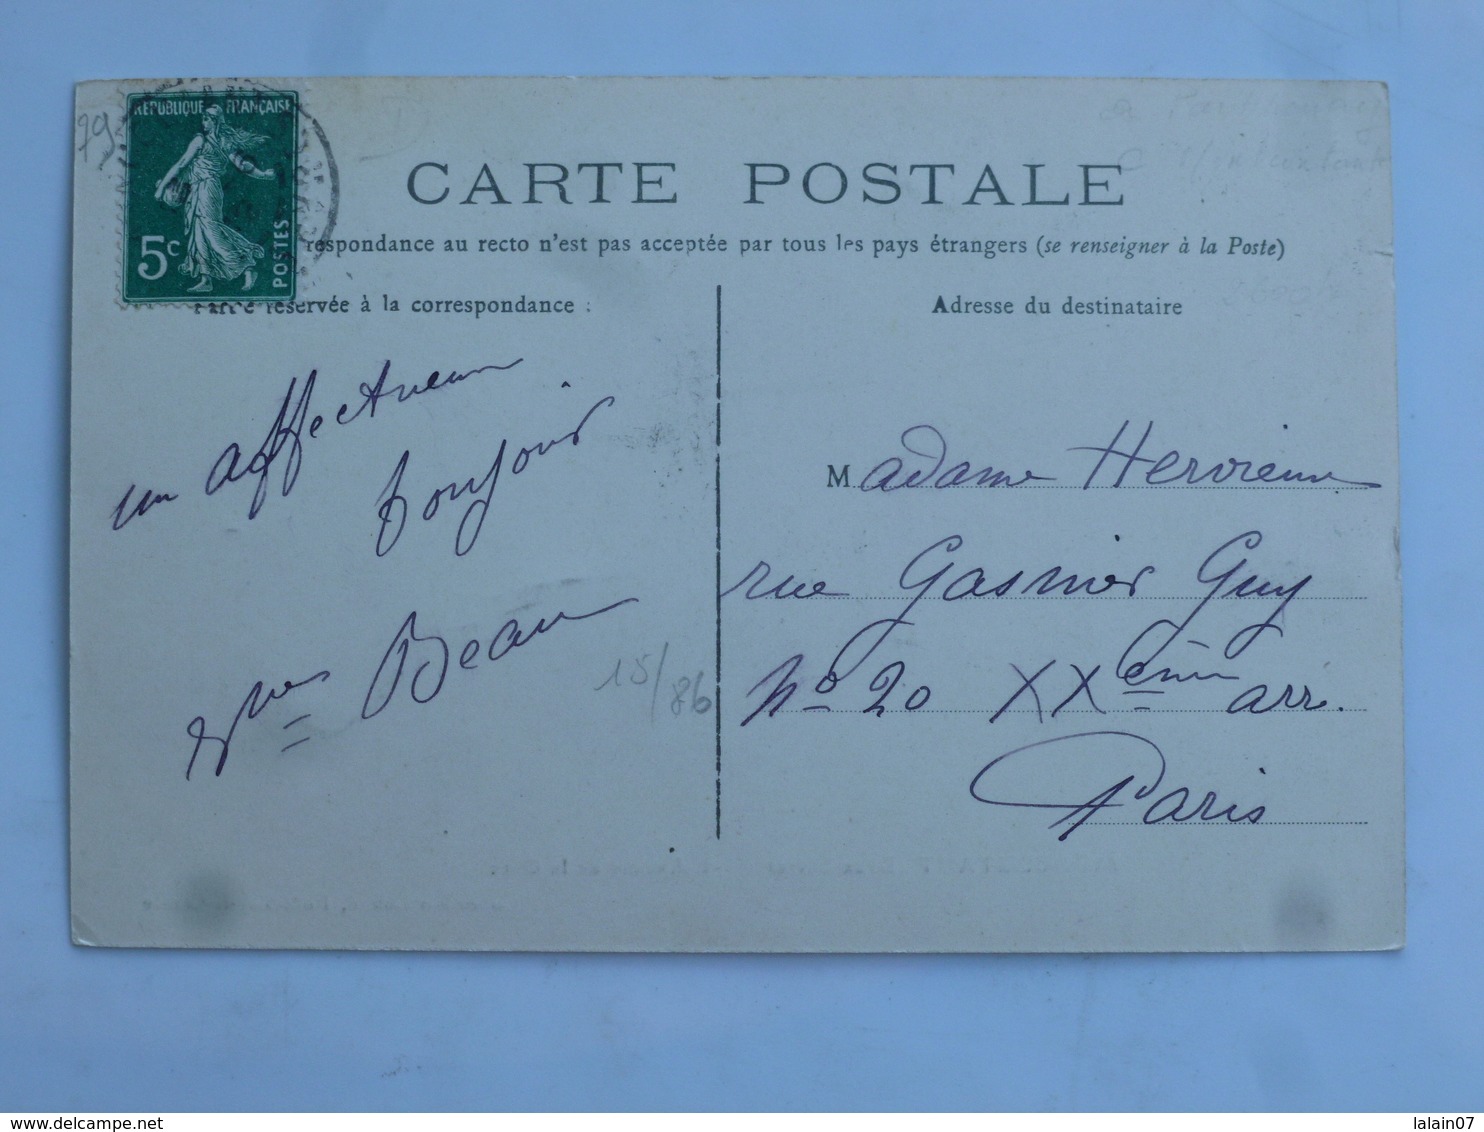 79
REPUBLIQUE FRANÇAISE
5c
POSTES
CARTE POSTALE
respondance au recto n'est pas acceptée par tous les pays étrangers (se renseigner à la Poste)
Partie réservée à la correspondance :
Adresse du destinataire
un affectueux
bonjour
Beau
15/86
Madame Hervieux
rue Gasnier Guy
No 20 XXème arr.
Paris
delcampe.net
lalain07